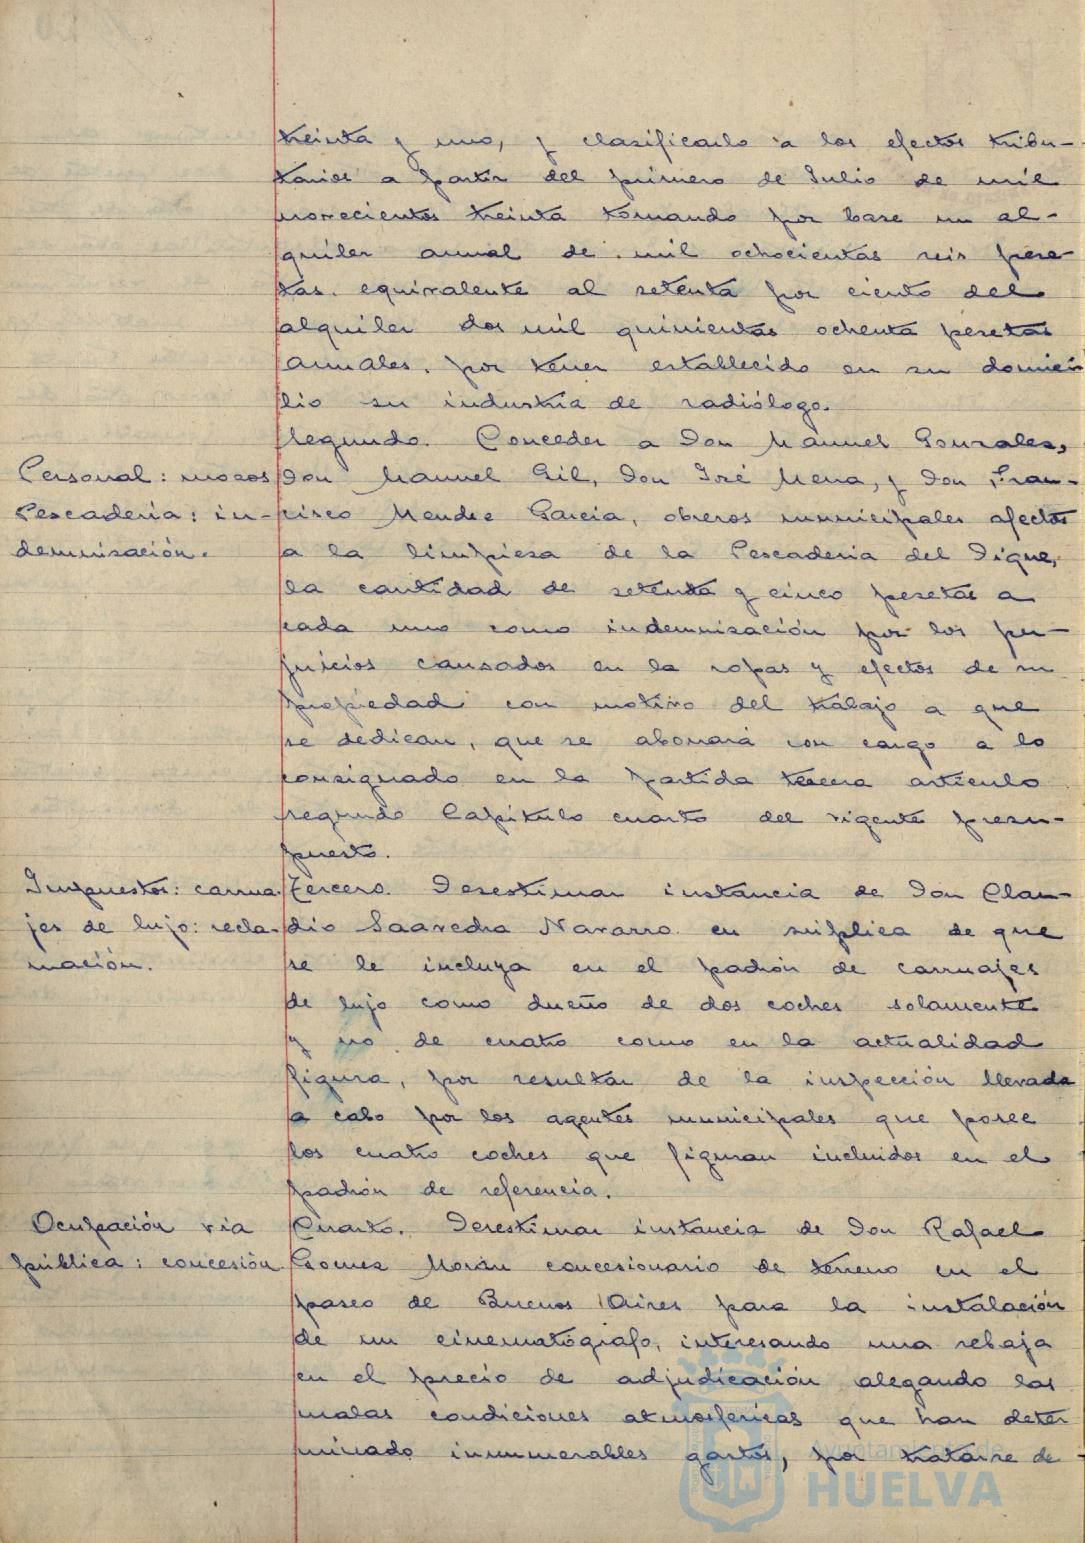 treinta y uno, y clasificarlo a los efectos tribu-
tarios a partir del primero de Julio de mil
novecientos treinta tomando por base un al-
quiler anual de mil ochocientas seis pese
tas. equivalente al setenta por ciento del
alquiler dos mil quinientas ochenta pesetas
anuales. por tener establecido en su domici
lio su industria de radiólogo.
Segundo. Conceder a Don Manuel Gonzales,
Personal: mozos
Pescaderia: in-
demnisación.
Don Manuel Gil, Don José Mena, y Don Fran-
cisco Mendez Garcia, obreros municipales afectos
a la limpiesa de la Pescaderia del Dique,
la cantidad de setenta y cinco pesetas a
cada uno como indemnisación por los per-
juicios causados en la ropas y efectos de su
propiedad con motivo del trabajo a que
se dedican, que se abonará con cargo a lo
consignado en la partida tercera articulo
segundo Capitulo cuarto del vigente presu-
puesto.
Impuestos: carrua-
jes de lujo: recla-
mación.
Tercero. Desestimar instancia de Don Clau-
dio Saavedra Navarro en suplica de que
se le incluya en el padrón de carruajes
de lujo como dueño de dos coches solamente
y no de cuatro como en la actualidad
figura, por resultar de la inspección llevada
a cabo por los agentes municipales que posee
los cuatro coches que figuran incluidos en el
padrón de referencia.
Ocupación via
pública: concesión
Cuarto. Desestimar instancia de Don Rafael
Gomez Morán concesionario de terreno en el
paseo de Buenos Aires para la instalación
de un cinematógrafo, interesando una rebaja
en el precio de adjudicación alegando las
malas condiciones atmosfericas que han deter
minado innumerables gastos, por tratarse de
Ayuntamiento de
HUELVA